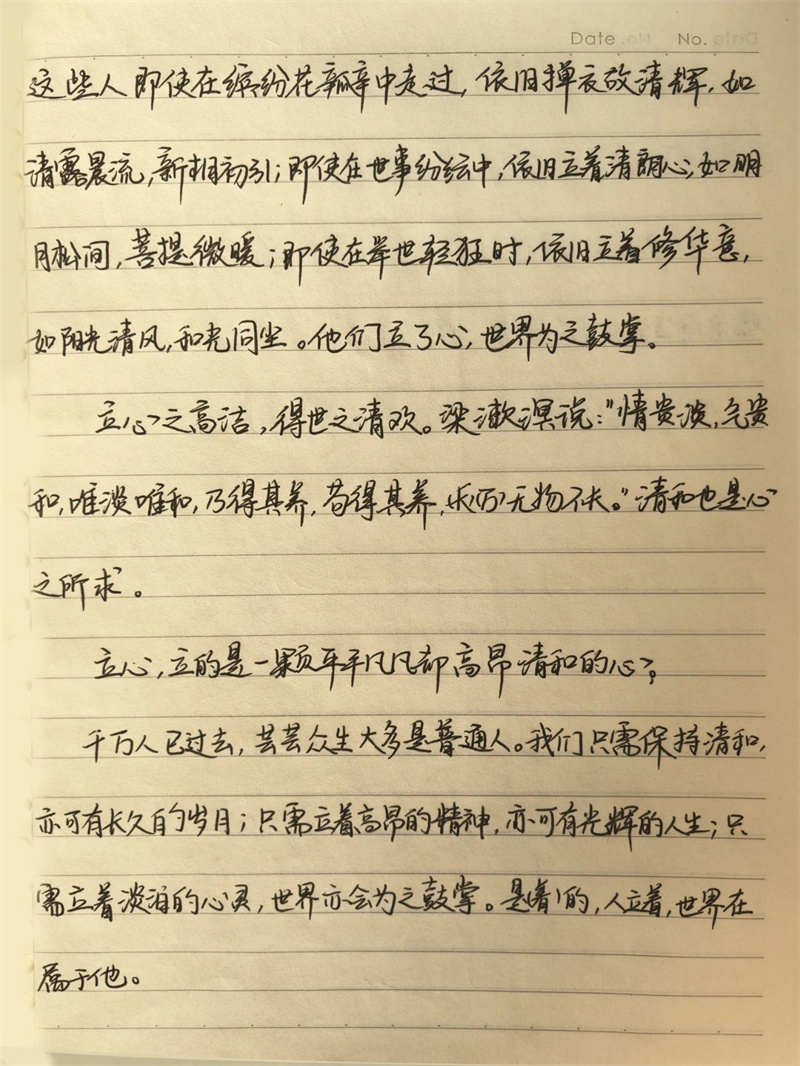 Date . No.
这些人即使在缤纷花瓣中走过，依旧掸衣放清辉，如
清露晨流，新桐初引；即使在世事纷纭中，依旧立着清朗心，如明
月松间，菩提微暖；即使在举世轻狂时，依旧立着修华意，
如阳光清风，和光同尘。他们立了心，世界为之鼓掌。
立心之高洁，得世之清欢。梁漱溟说："情贵淡，气贵
和，唯淡唯和，乃得其养，苟得其养，无物不长。"清和也是心
之所求。
立心，立的是一颗平平凡凡却高昂清和的心。
千万人已过去，芸芸众生大多是普通人。我们只需保持清和，
亦可有长久的岁月；只需立着高昂的精神，亦可有光辉的人生；只
需立着淡泊的心灵，世界亦会为之鼓掌。是的，人立着，世界在
属于他。